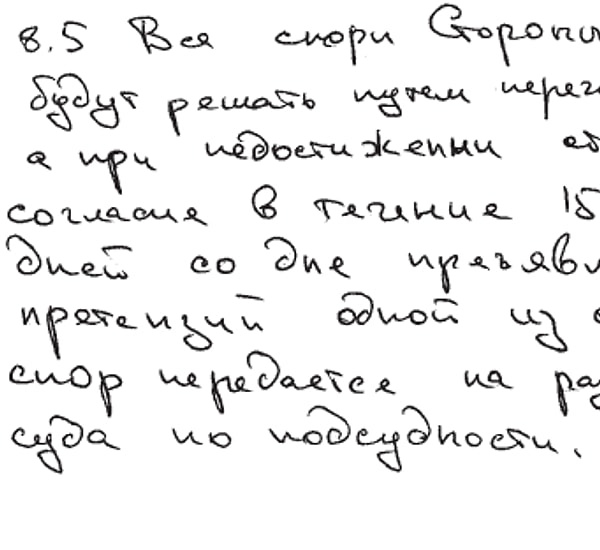 8.5 Все споры Стороны
будут решать путем перег
а при недостижении
согласия в течение 15
дней со дня предъяв
претензий одной из
спор передается на ра
суда по подсудности.